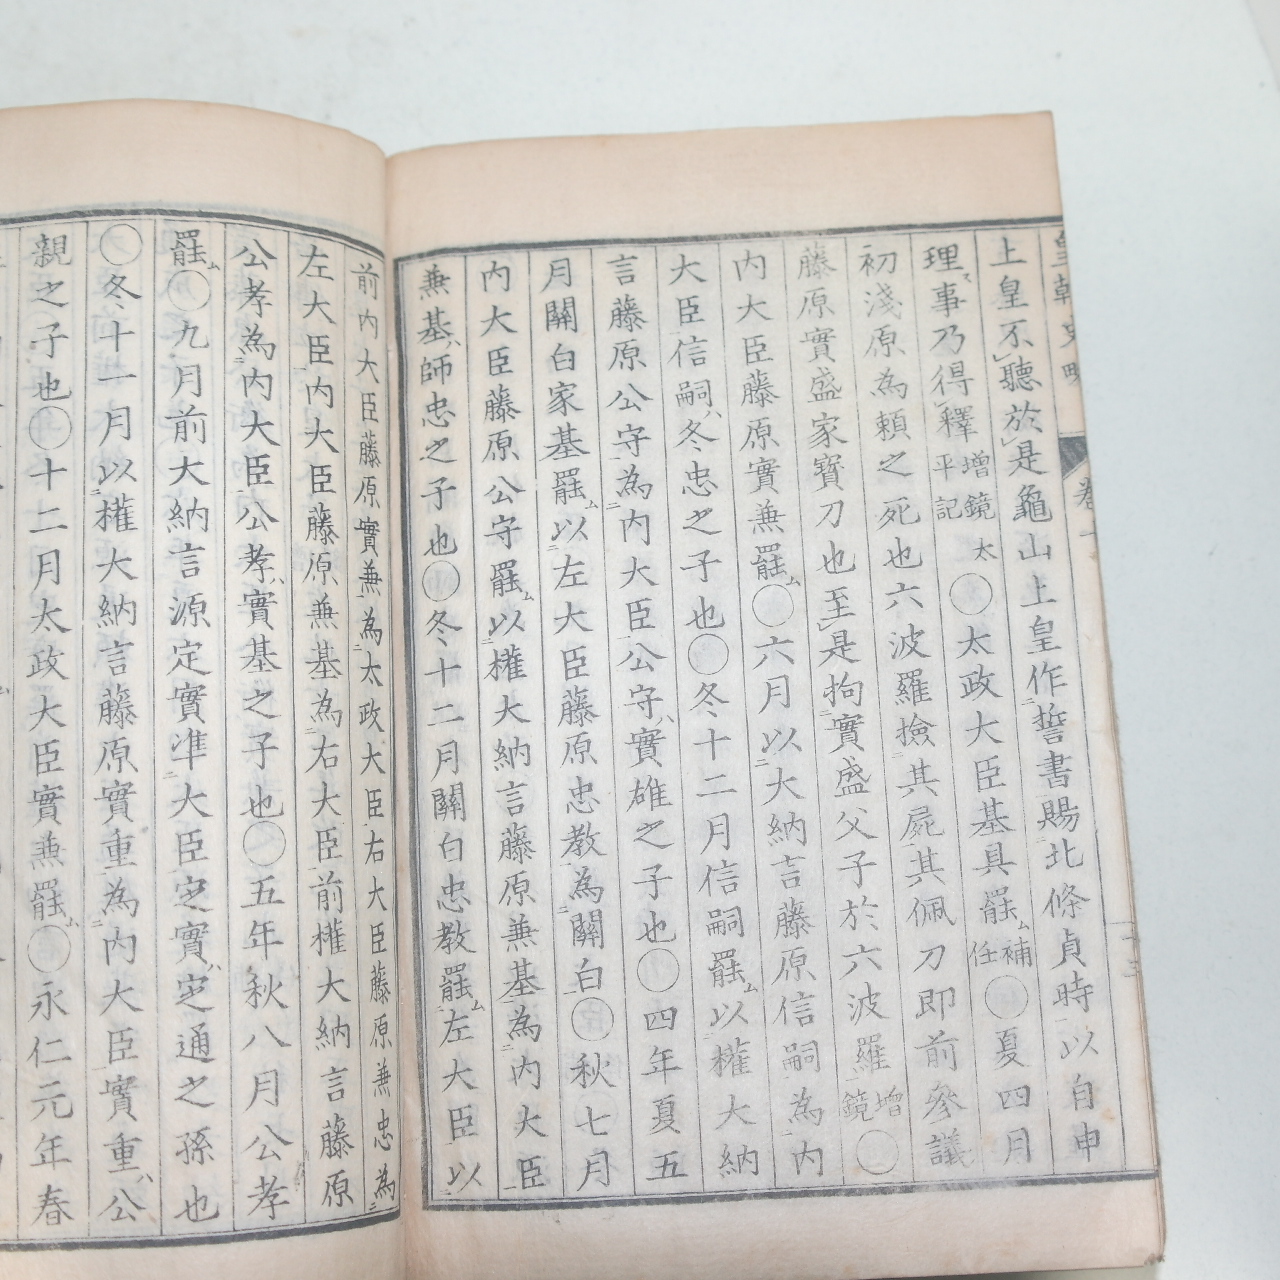 皇朝史略 卷十
上皇不聽於是龜山上皇作誓書賜北條貞時以自申
理事乃得釋增鏡太平記〇太政大臣基具罷補任〇夏四月
初淺原為賴之死也六波羅撿其屍其佩刀即前參議
藤原實盛家寶刀也至是拘實盛父子於六波羅增鏡〇
內大臣藤原實兼罷〇六月以大納言藤原信嗣為內
大臣信嗣冬忠之子也〇冬十二月信嗣罷以權大納
言藤原公守為內大臣公守實雄之子也〇四年夏五
月關白家基罷以左大臣藤原忠教為關白〇秋七月
內大臣藤原公守罷以權大納言藤原兼基為內大臣
兼基師忠之子也〇冬十二月關白忠教罷左大臣以
前內大臣藤原實兼為太政大臣右大臣藤原兼忠為
左大臣內大臣藤原兼基為右大臣前權大納言藤原
公孝為內大臣公孝實基之子也〇五年秋八月公孝
罷〇九月前大納言源定實准大臣定實定通之孫也
〇冬十一月以權大納言藤原實重為內大臣實重公
親之子也〇十二月太政大臣實兼罷〇永仁元年春